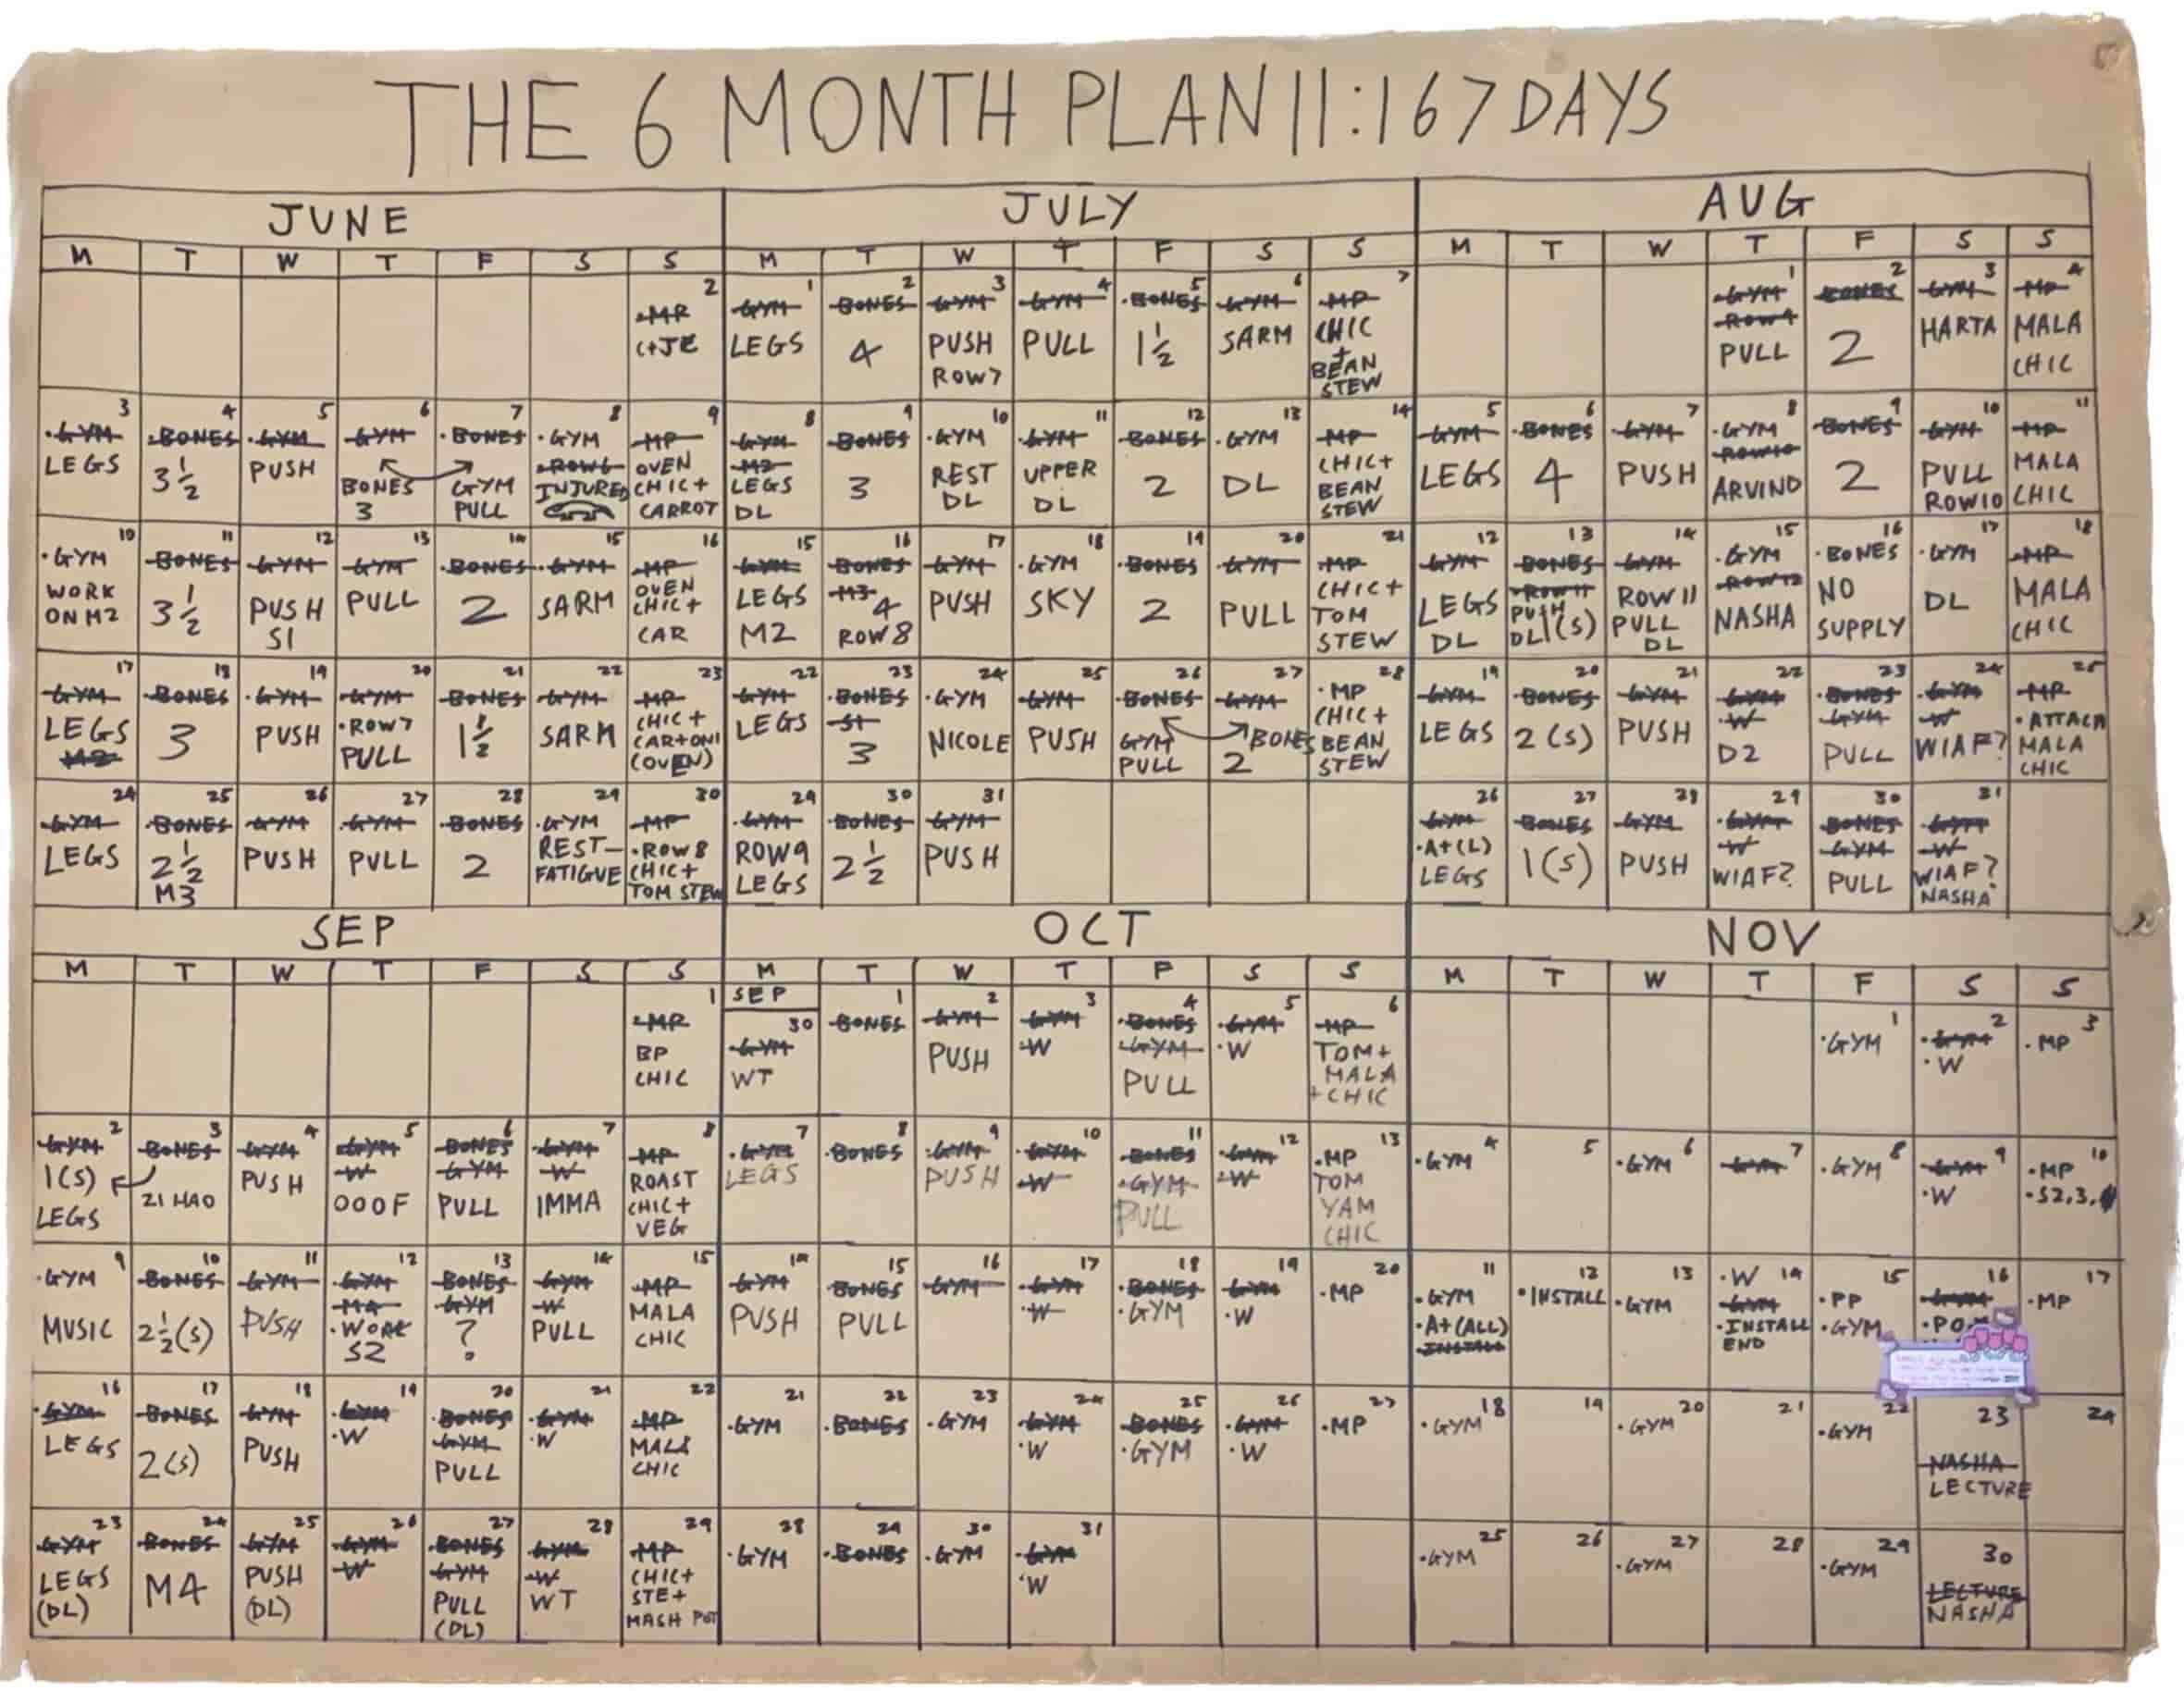 THE 6 MONTH PLAN II: 167 DAYS
JUNE
M T W T F S S
2
MP
C+JE
3
GYM
LEGS
4
BONES
3 1/2
5
GYM
PUSH
6
GYM
BONES
3
7
BONES
GYM
PULL
8
GYM
ROW6
INJURED
9
MP
OVEN
CHIC+
CARROT
10
GYM
WORK
ON M2
11
BONES
3 1/2
12
GYM
PUSH
S1
13
GYM
PULL
14
BONES
2
15
GYM
SARM
16
MP
OVEN
CHIC+
CAR
17
GYM
LEGS
M2
18
BONES
3
19
GYM
PUSH
20
GYM
ROW7
PULL
21
BONES
1 1/2
22
GYM
SARM
23
MP
CHIC+
CAR+ONI
(OVEN)
24
GYM
LEGS
25
BONES
2 1/2
M3
26
GYM
PUSH
27
GYM
PULL
28
BONES
2
29
GYM
REST-
FATIGUE
30
MP
ROW8
CHIC+
TOM STEW
JULY
M T W T F S S
1
GYM
LEGS
2
BONES
4
3
GYM
PUSH
ROW7
4
GYM
PULL
5
BONES
1 1/2
6
GYM
SARM
7
MP
CHIC
+
BEAN
STEW
8
GYM
M2
LEGS
DL
9
BONES
3
10
GYM
REST
DL
11
GYM
UPPER
DL
12
BONES
2
13
GYM
DL
14
MP
CHIC+
BEAN
STEW
15
GYM
LEGS
M2
16
BONES
M3
4
ROW8
17
GYM
PUSH
18
GYM
SKY
19
BONES
2
20
GYM
PULL
21
MP
CHIC+
TOM
STEW
22
GYM
LEGS
23
BONES
S1
3
24
GYM
NICOLE
25
GYM
PUSH
26
BONES
GYM
PULL
27
GYM
BONES
2
28
MP
CHIC+
BEAN
STEW
29
GYM
ROW9
LEGS
30
BONES
2 1/2
31
GYM
PUSH
AUG
M T W T F S S
1
GYM
ROW9
PULL
2
BONES
2
3
GYM
HARTA
4
MP
MALA
CHIC
5
GYM
LEGS
6
BONES
4
7
GYM
PUSH
8
GYM
ROW10
ARVIND
9
BONES
2
10
GYM
PULL
ROW10
11
MP
MALA
CHIC
12
GYM
LEGS
DL
13
BONES
ROW11
PUSH
DL 1(S)
14
GYM
ROW11
PULL
DL
15
GYM
ROW12
NASHA
16
BONES
NO
SUPPLY
17
GYM
DL
18
MP
MALA
CHIC
19
GYM
LEGS
20
BONES
2(S)
21
GYM
PUSH
22
GYM
W
D2
23
BONES
GYM
PULL
24
GYM
W
WIAF?
25
MP
ATTACH
MALA
CHIC
26
GYM
A+(L)
LEGS
27
BONES
1(S)
28
GYM
PUSH
29
GYM
W
WIAF?
30
BONES
GYM
PULL
31
GYM
W
WIAF?
NASHA
SEP
M T W T F S S
1
MP
BP
CHIC
2
GYM
1(S)
LEGS
3
BONES
21 HAO
4
GYM
PUSH
5
GYM
W
OOOF
6
BONES
GYM
PULL
7
GYM
W
IMMA
8
MP
ROAST
CHIC+
VEG
9
GYM
MUSIC
10
BONES
2 1/2(S)
11
GYM
PUSH
12
GYM
M4
WORK
S2
13
BONES
GYM
?
14
GYM
W
PULL
15
MP
MALA
CHIC
16
GYM
LEGS
17
BONES
2(S)
18
GYM
PUSH
19
GYM
W
20
BONES
GYM
PULL
21
GYM
W
22
MP
MALA
CHIC
23
GYM
LEGS
(DL)
24
BONES
M4
25
GYM
PUSH
(DL)
26
GYM
W
27
BONES
GYM
PULL
(DL)
28
GYM
W
WT
29
MP
CHIC+
STE+
MASH POT
OCT
M T W T F S S
SEP
30
GYM
WT
1
BONES
2
GYM
PUSH
3
GYM
W
4
BONES
GYM
PULL
5
GYM
W
6
MP
TOM+
MALA
+CHIC
7
GYM
LEGS
8
BONES
9
GYM
PUSH
10
GYM
W
11
BONES
GYM
PULL
12
GYM
W
13
MP
TOM
YAM
CHIC
14
GYM
PUSH
15
BONES
PULL
16
GYM
17
GYM
W
18
BONES
GYM
19
GYM
W
20
MP
21
GYM
22
BONES
23
GYM
24
GYM
W
25
BONES
GYM
26
GYM
W
27
MP
28
GYM
29
BONES
30
GYM
31
GYM
W
NOV
M T W T F S S
1
GYM
2
GYM
W
3
MP
4
GYM
5
6
GYM
7
GYM
8
GYM
9
GYM
W
10
MP
S2,3,
11
GYM
A+(ALL)
INSTALL
12
INSTALL
13
GYM
14
W
GYM
INSTALL
END
15
PP
GYM
16
GYM
17
MP
18
GYM
19
20
GYM
21
22
GYM
23
NASHA
LECTURE
24
25
GYM
26
27
GYM
28
29
GYM
30
LECTURE
NASHA